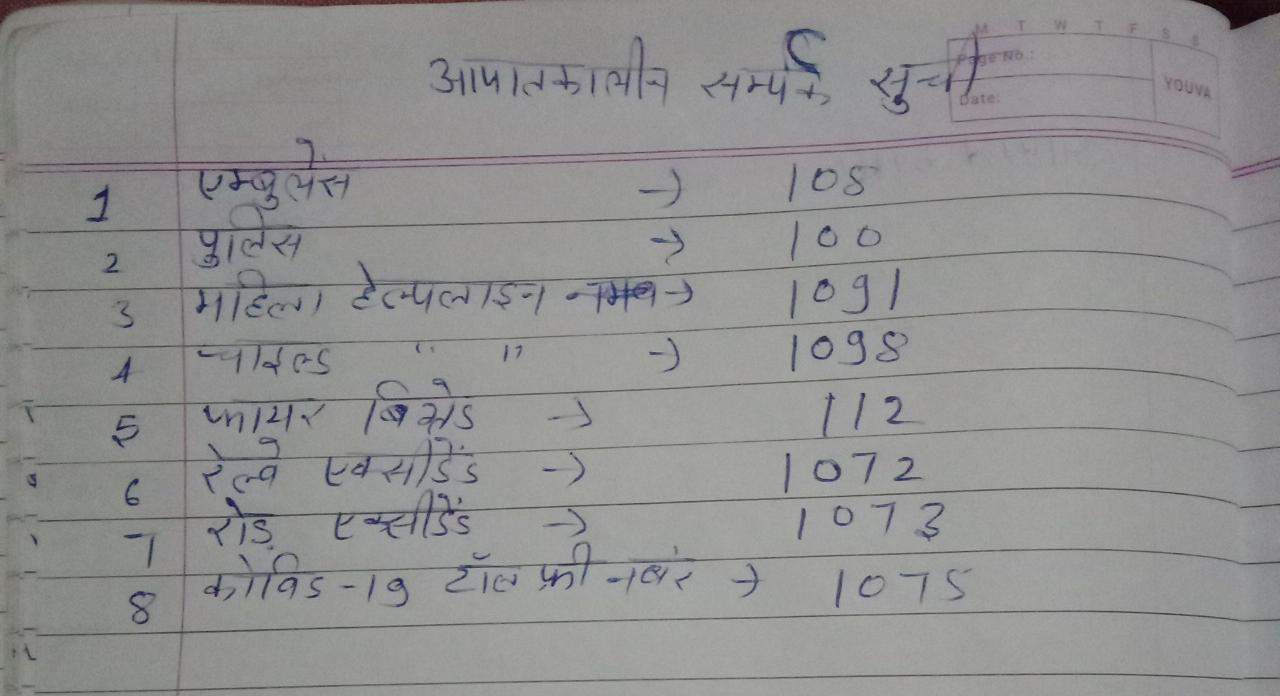 M T W T F S S
Page No.:
Date:
YOUVA
आपातकालीन सर्म्पक सुची
1 एम्बुलेंस → 108
2 पुलिस → 100
3 महिला हेल्पलाइन → 1091
4 चाइल्ड " " → 1098
5 फायर बिग्रेड → 112
6 रेल्वे एक्सीडेंड → 1072
7 रोड़ एक्सीडेंड → 1073
8 कोविड-19 टॉल फ्री नबंर → 1075